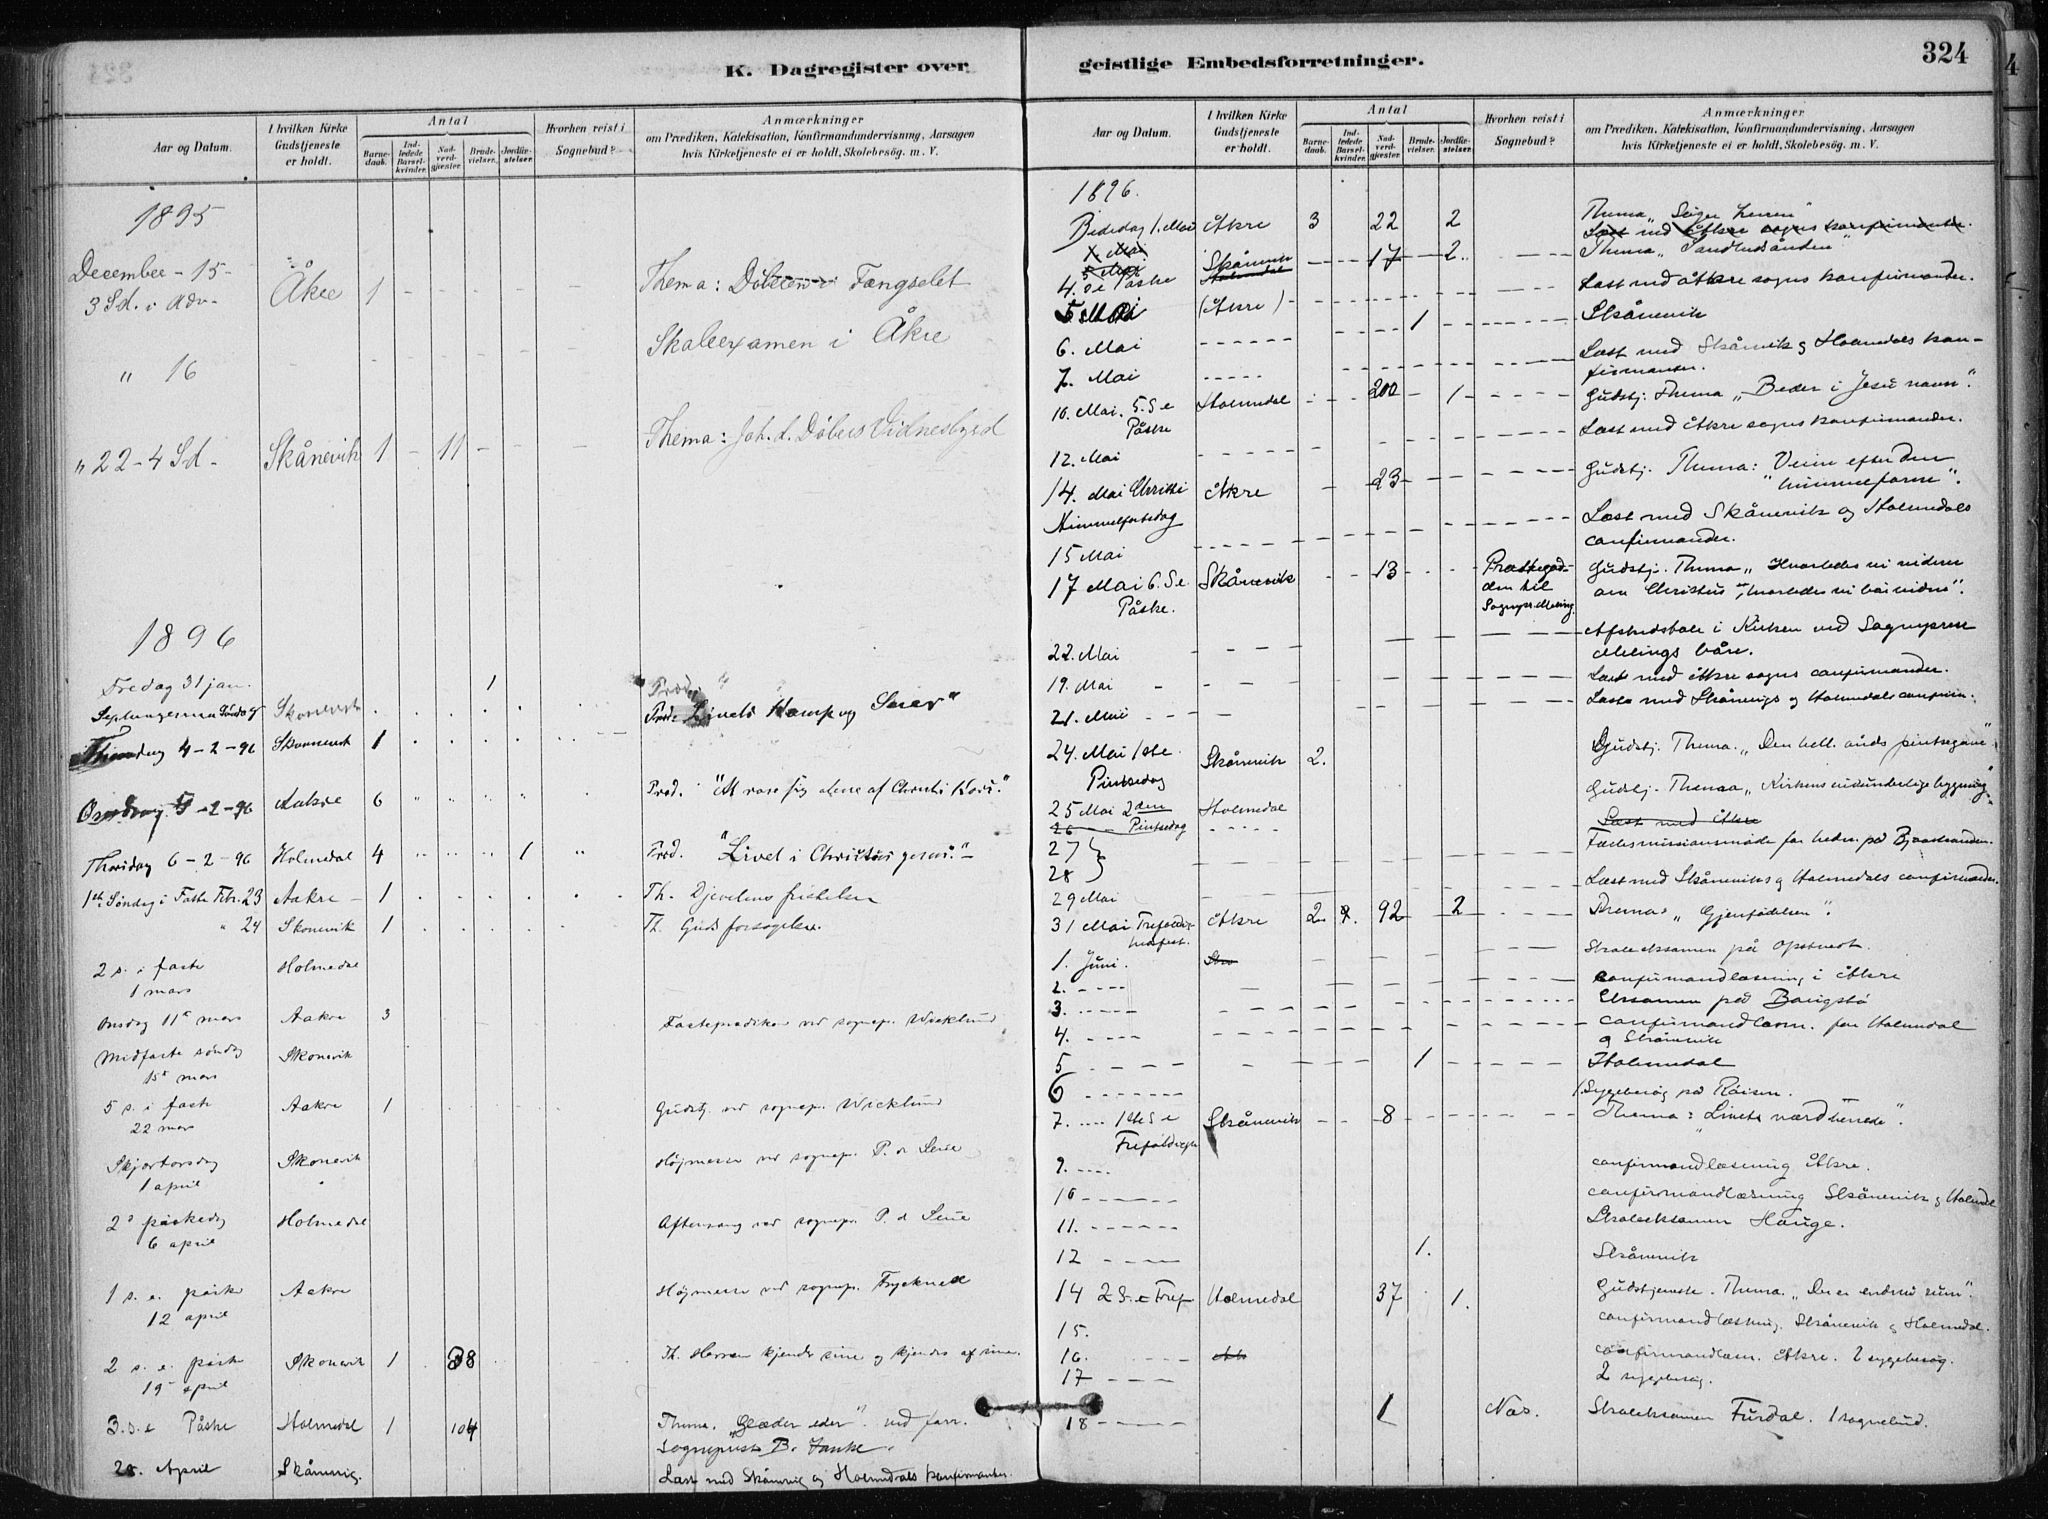 K. Dagregister over
geistlige Embedsforretninger.
324
Aar og Datum.
I hvilken Kirke Gudstjeneste er holdt.
Antal
Barnedaab.
Indledede Barselkvinder.
Nadverdgjester.
Brudevielser.
Jordfæstelser.
Hvorhen reist i Sognebud?
Anmærkninger
om Prædiken, Katekisation, Konfirmandundervisning, Aarsagen
hvis Kirketjeneste ei er holdt, Skolebesög. m. V.
1895
December - 15 -
3 Sd. i Adv - Åkre 1 Thema: Døberen i Fængselet
" 16 Skoleexamen i Åkre
" 22 - 4 Sd - Skånevik 1 - 11 - Thema: Joh. d. Døbers Vidnesbyrd
1896
Fredag 31 jan. 1
Septuagesima Søndag Skonevik Præd. Livets Kamp og Seier"
4-2-96 Skonevik 1
Onsdag 5-2-96 Aakre 6 Præd. "At rose sig alene af Christi Kors."
Thorsdag 6-2-96 Holmedal 4 1 Præd. "Livet i Christus Jesus."
1ste Søndag i Faste Febr. 23 Aakre 1 Th. Djevelens fristelser
" 24 Skonevik 1 Th. Guds forsagelse.
2 s. i faste Holmedal
1 mars
Onsdag 11te mars Aakre 3 Fasteprædiken ved sognepr. Wicklund
Midfaste søndag Skonevik
15de mars
5 s. i faste Aakre 1 Gudstj. ved sognepr. Wicklund
22 mars
Skjærtorsdag Skonevik Højmesse ved sognepr. P. d Seue
1 april
2den påskedag Holmedal Aftensang ved sognepr. P. d Seue
6 april
1 s. e. påske Aakre Højmesse ved sognepr.
12 april
2 s. e. påske Skonevik 1 38 Th. Herren kjender sine og kjendes af sine.
19de april
3. s. e Påske Holmedal 1 104 Thema. "Glæder eder". ved forr.
Sogneprest B. Janke.
28. April Skånevig. Læst med Skånevig og Holmedals konfirmanter.
Aar og Datum.
I hvilken Kirke Gudstjeneste er holdt.
Antal
Barnedaab.
Indledede Barselkvinder.
Nadverdgjester.
Brudevielser.
Jordfæstelser.
Hvorhen reist i Sognebud?
Anmærkninger
om Prædiken, Katekisation, Konfirmandundervisning, Aarsagen
hvis Kirketjeneste ei er holdt, Skolebesög. m. V.
1896.
Bededag 1. Mai Åkre 3 22 2 Thema "Søger Herren"
Læst med Åkre sogns konfirmanter.
4. S e Påske Skånevik 17 2 Thema "Sandhedsånden"
5 Mai (Åkre) Læst med Åkre sogns konfirmander.
6. Mai 1 Skånevik
7. Mai Læst med Skånevik og Holmedals konfirmander.
10. Mai. 5. S e Påske Holmedal 200 1 Gudstj: Thema "Beder i Jesu navn".
12. Mai Læst med Åkre sogns konfirmander.
14. Mai Christi Himmelfartsdag Åkre 23 Gudstj. Thema: Veien efter den "himmelfarne".
15 Mai Læst med Skånevik og Holmedals confirmander.
17 Mai 6. S e. Påske. Skånevik 13 Præstegården til Sognepr. Meling. Gudstj. Thema "Hvorledes vi vidner om Christus", "hvorledes vi bør vidne".
22. Mai Afskedstale i Kirken ved Sogneprest Melings båre.
19. Mai Læst med Åkre sogns confirmander.
21. Mai Læste med Skånevigs og Holmedals confirm.
24. Mai 1ste Pintsedag Skånevik 2. Gudstj. Thema. "Den hell. ånds pintsegave".
25 Mai 2den Pintsedag Holmedal Gudstj. Thema "Kirkens vidunderlige bygning".
26 Læst med Åkre
27 } Fællesmissionsmøde for hedn. på Bjoastranden.
28 }
29 Mai Læst med Skåneviks og Holmedals confirmander.
31 Mai Trefoldighedsfest. Åkre 2 92 2 Thema: "Gjenfødelsen".
1. Juni. Skoleeksamen på Opstvedt.
2. confirmandlæsning i Åkre
3. Eksamen på Baugstø
4. confirmandlæsn. for Holmedal og Skånevik
5 1 Holmedal
6 1 Sygebesøg på Røisen.
7. 1ste S e Trefoldigh Skånevik 8 Thema: "Livets værd herrede".
9. confirmandlæsning Åkre.
10 confirmandlæsning Skånevik og Holmedal
11. Skoleeksamen Hauge.
12 1. Skånevik
14 2 S. e Tref Holmedal 37 1. Gudstjeneste. Thema. "Der er endnu rum".
15. confirmandlæsning. Skånevik og Holmedal.
16. confirmandlæsn. Åkre. 2 sygebesøg.
17 2 sygebesøg.
18 1 Næs. Skoleeksamen Furdal. 1 sognebud.